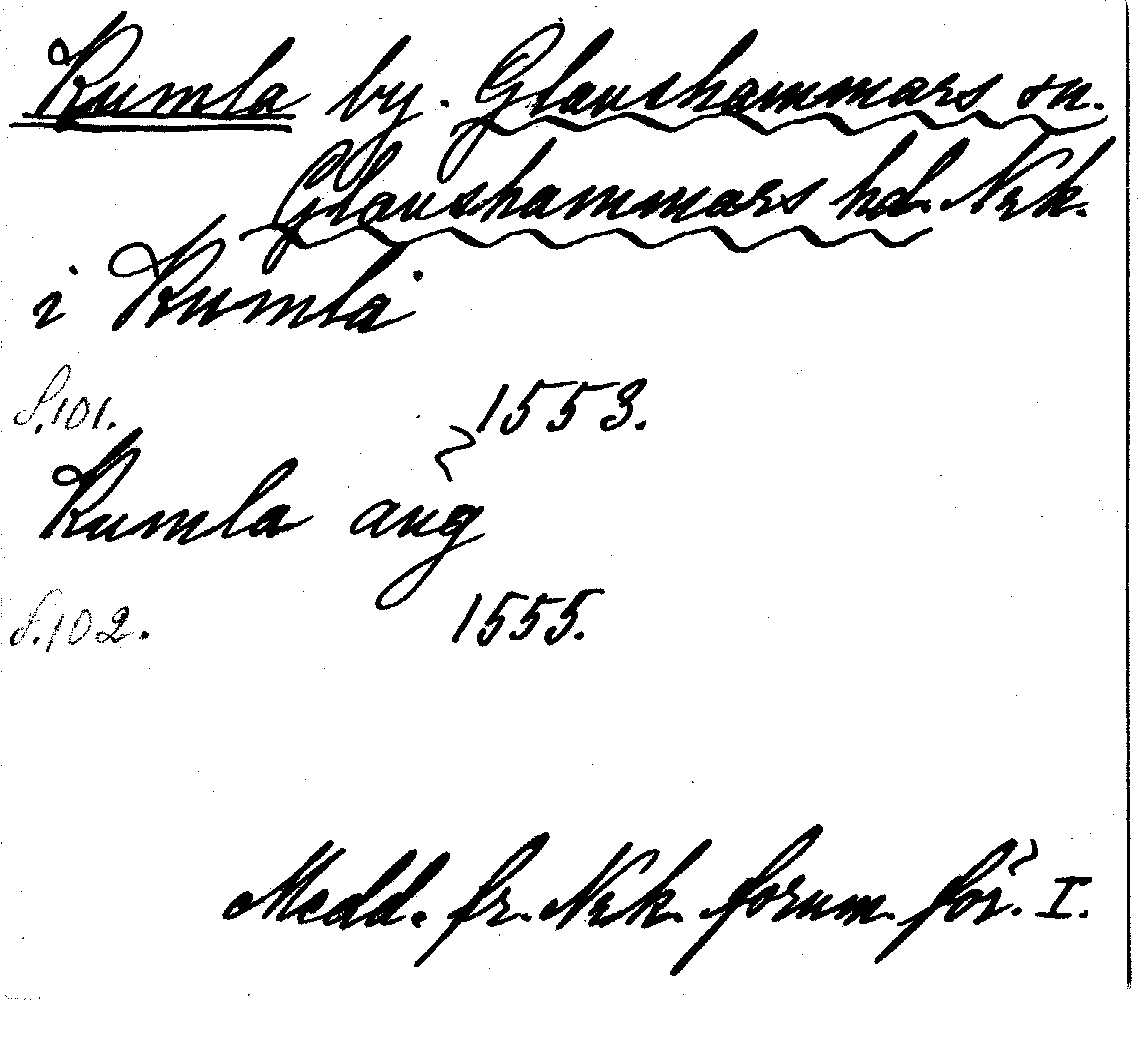 Kumla by. Glanshammars sn.
Glanshammars hd. Nrk.
i Kumla
S. 101. 1553.
Kumla äng
S. 102. 1555.
Medd. fr. Nrk. fornm. för. I.